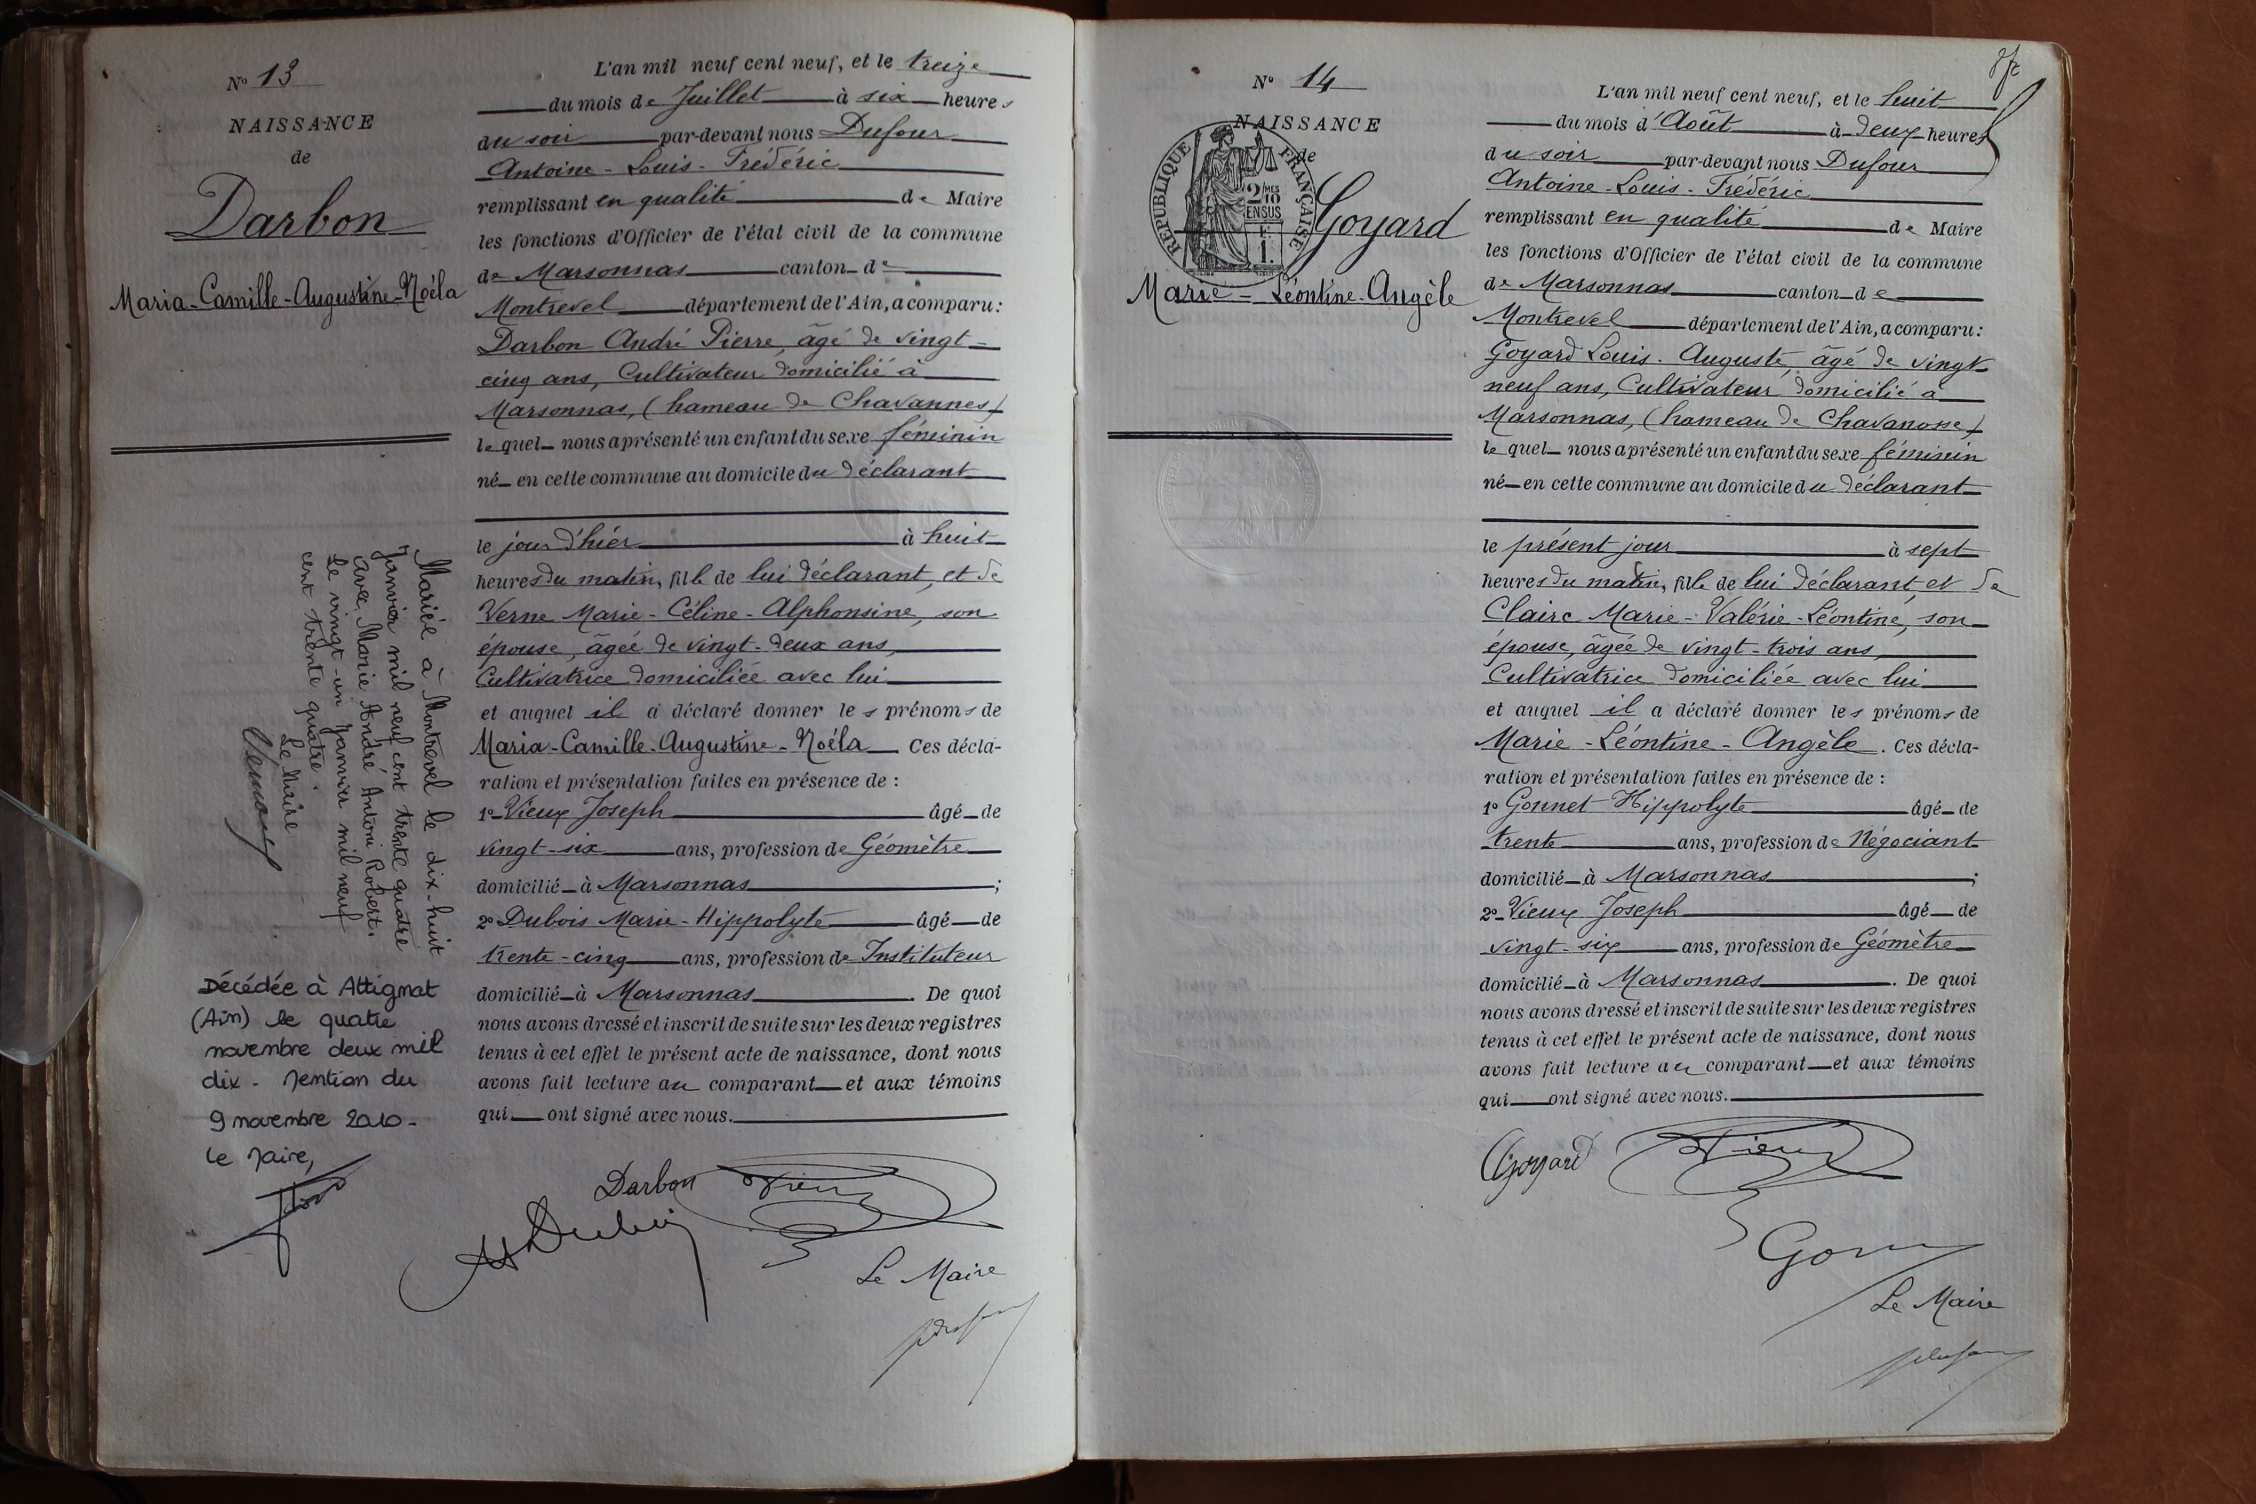 N° 13
NAISSANCE
de
Darbon
Maria-Camille-Augustine-Noéla
L'an mil neuf cent neuf, et le treize
du mois de Juillet à six heures
du soir par-devant nous Dufour
Antoine-Louis-Frédéric
remplissant en qualité de Maire
les fonctions d'Officier de l'état civil de la commune
de Marsonnas canton de
Montrevel département de l'Ain, a comparu :
Darbon André Pierre, âgé de vingt-
cinq ans, Cultivateur domicilié à
Marsonnas, (hameau de Chavannes)
lequel nous a présenté un enfant du sexe féminin
né en cette commune au domicile du déclarant
le jour d'hier à huit
heures du matin, fille de lui déclarant, et de
Verne Marie-Céline-Alphonsine, son
épouse, âgée de vingt-deux ans,
Cultivatrice domiciliée avec lui
et auquel il a déclaré donner les prénoms de
Maria-Camille-Augustine-Noéla Ces décla-
ration et présentation faites en présence de :
1° Vieux Joseph âgé de
vingt-six ans, profession de Géomètre
domicilié à Marsonnas ;
2° Dubois Marie-Hippolyte âgé de
trente-cinq ans, profession de Instituteur
domicilié à Marsonnas . De quoi
nous avons dressé et inscrit de suite sur les deux registres
tenus à cet effet le présent acte de naissance, dont nous
avons fait lecture au comparant et aux témoins
qui ont signé avec nous.
Darbon Vieux
Dubois
Le Maire
Dufour
Mariée à Montrevel le dix-huit
janvier mil neuf cent trente quatre
avec Marie André Antoni Robert.
Le vingt-un janvier mil neuf
cent trente quatre.
Le Maire
Décédée à Attignat
(Ain) le quatre
novembre deux mil
dix - Mention du
9 novembre 2010 -
Le Maire,
N° 14
NAISSANCE
de
RÉPUBLIQUE FRANÇAISE
2/10 MES
EN SUS
1F.
Goyard
Marie-Léontine-Angèle
L'an mil neuf cent neuf, et le huit
du mois d'Août à deux heures
du soir par-devant nous Dufour
Antoine-Louis-Frédéric
remplissant en qualité de Maire
les fonctions d'Officier de l'état civil de la commune
de Marsonnas canton de
Montrevel département de l'Ain, a comparu :
Goyard Louis-Auguste, âgé de vingt-
neuf ans, Cultivateur domicilié à
Marsonnas, (hameau de Chavanosse)
lequel nous a présenté un enfant du sexe féminin
né en cette commune au domicile du déclarant
le présent jour à sept
heures du matin, fille de lui déclarant et de
Claire Marie-Valérie-Léontine, son
épouse, âgée de vingt-trois ans,
Cultivatrice domiciliée avec lui
et auquel il a déclaré donner les prénoms de
Marie-Léontine-Angèle. Ces décla-
ration et présentation faites en présence de :
1° Gonnet Hippolyte âgé de
trente ans, profession de Négociant
domicilié à Marsonnas ;
2° Vieux Joseph âgé de
vingt-six ans, profession de Géomètre
domicilié à Marsonnas . De quoi
nous avons dressé et inscrit de suite sur les deux registres
tenus à cet effet le présent acte de naissance, dont nous
avons fait lecture au comparant et aux témoins
qui ont signé avec nous.
Goyard Vieux
Le Maire
Dufour